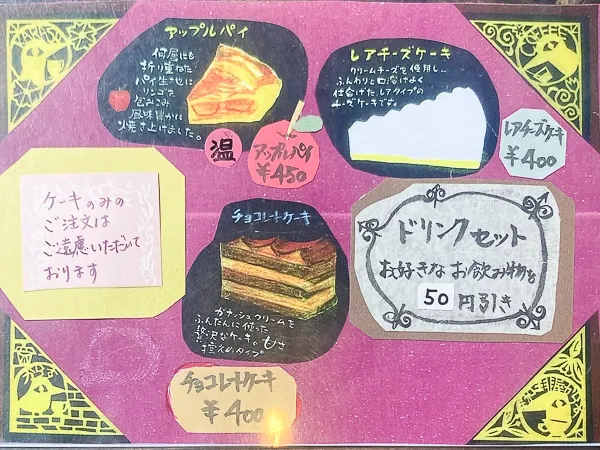 アップルパイ
何層にも
折り重ねた
パイ生地に
リンゴを
包みこみ
風味豊かに
焼き上げました。
温
アップルパイ
¥450
レアチーズケーキ
クリームチーズを使用し、
ふんわりと口溶けよく
仕上げたレアタイプの
チーズケーキです。
レアチーズケーキ
¥400
ケーキのみの
ご注文は
ご遠慮いただいて
おります
チョコレートケーキ
ガナッシュクリームを
ふんだんに使った
贅沢なケーキ。甘さ
控えめタイプ
チョコレートケーキ
¥400
ドリンクセット
お好きなお飲み物を
50円引き